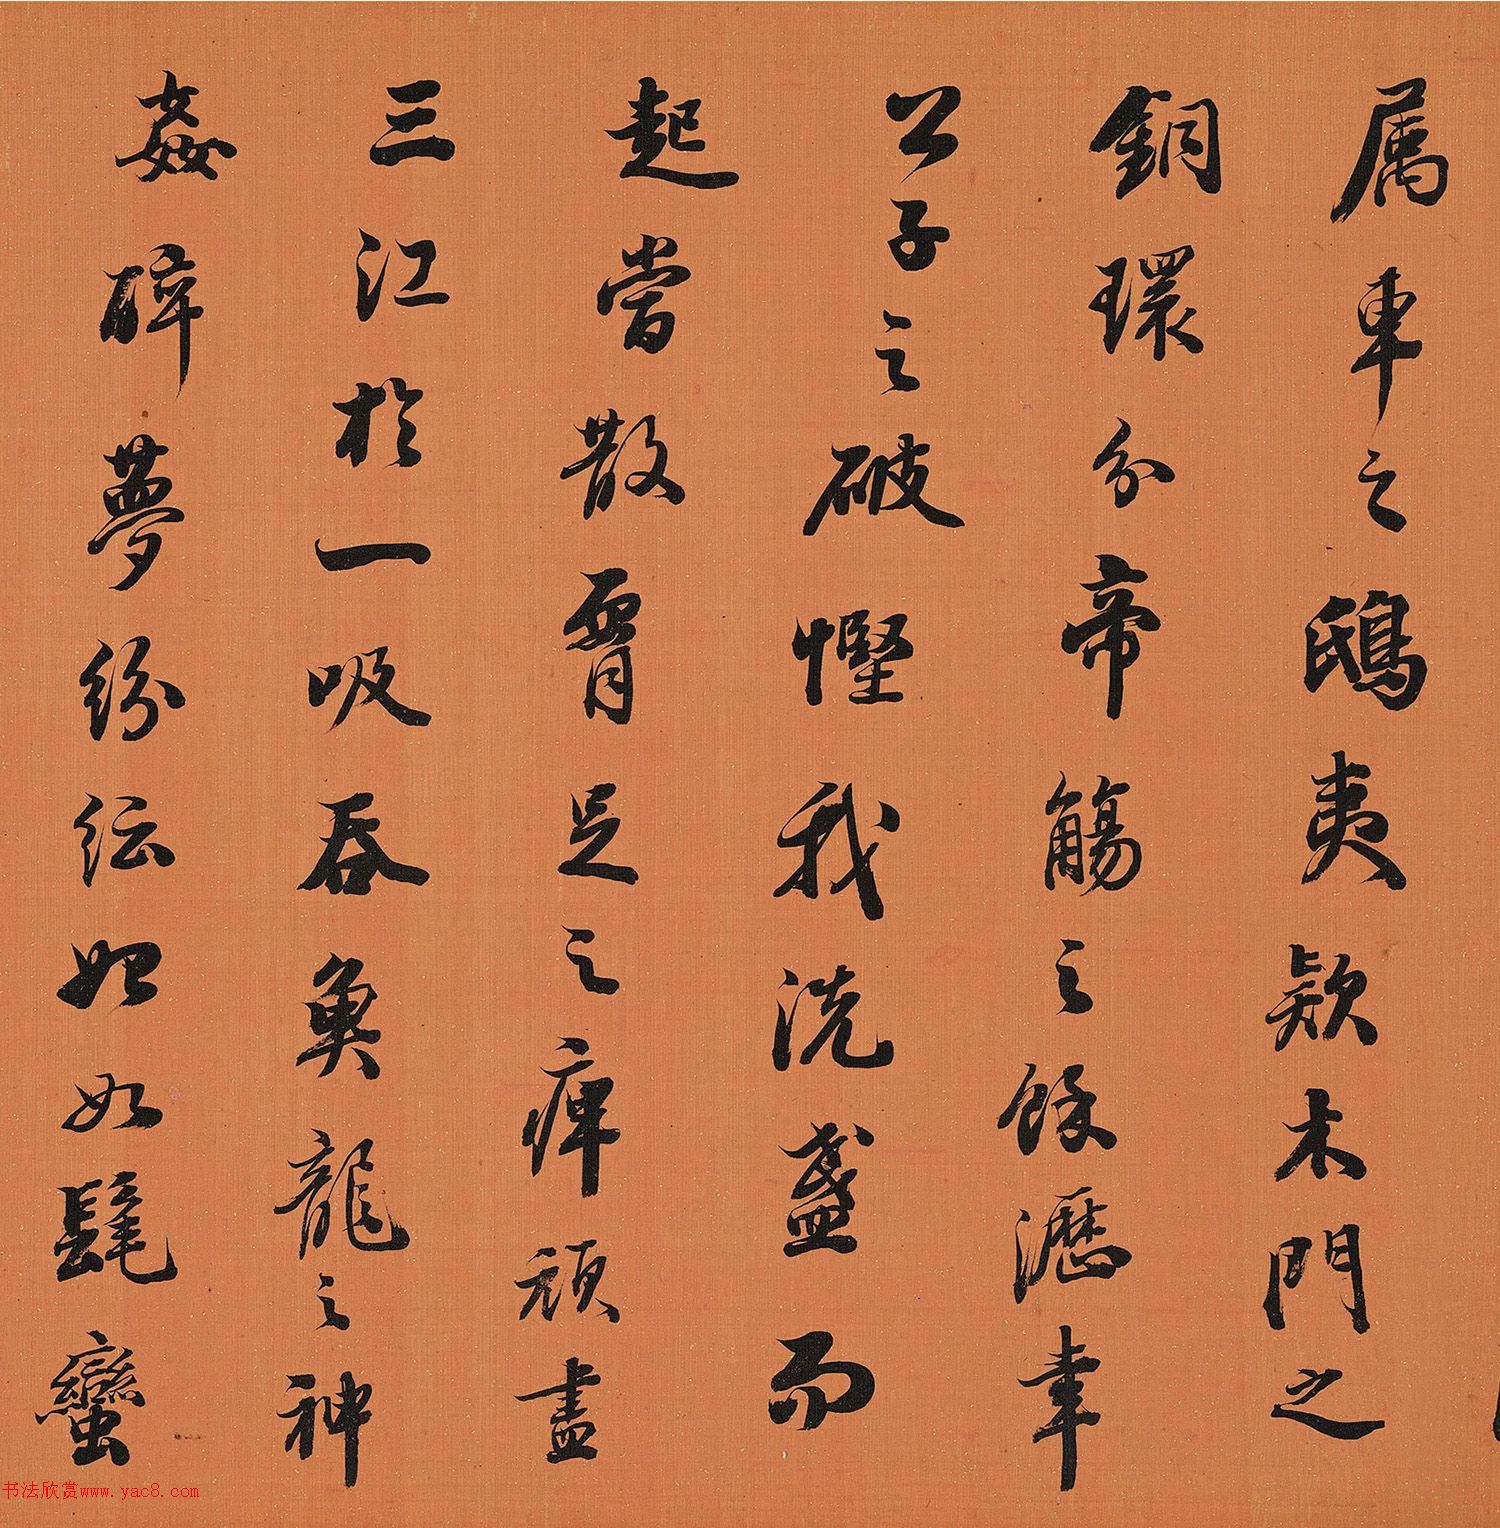 属車之鴟夷欵木門之
銅環分帝觴之餘瀝幸
公子之破慳我洗盞而
起嘗散腰足之痺頑盡
三江於一吸吞魚龍之神
姦醉夢紛紜始如髦蠻
书法欣赏www.yac8.com